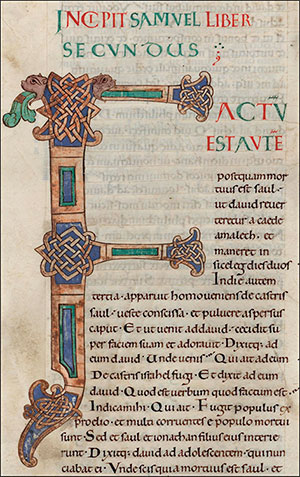 INCIPIT SAMUEL LIBER
SECUNDUS
FACTŪ
EST AUTĒ
postquam mor
tuus est saul·
ut david rever
teretur a caede
amalech· et
maneret in
siceleg dies duos
In die autem
tertia· apparuit homo veniens de castris
saul· veste conscissa· et pulvere aspersus
caput· Et ut venit ad david· cecidit su
per faciem suam et adoravit· Dixitq; ad
eum david· Unde venis· Qui ait ad eum
De castris israhel fugi· Et dixit ad eum
david· Quod est verbum quod factum est·
Indica mihi· Qui ait· Fugit populus ex
proelio· et multi corruentes e populo mortui
sunt· Sed et saul et ionathan filius eius interie
runt· Dixitq; david ad adolescentem· qui nun
ciabat ei· Unde scis quia mortuus est saul· et